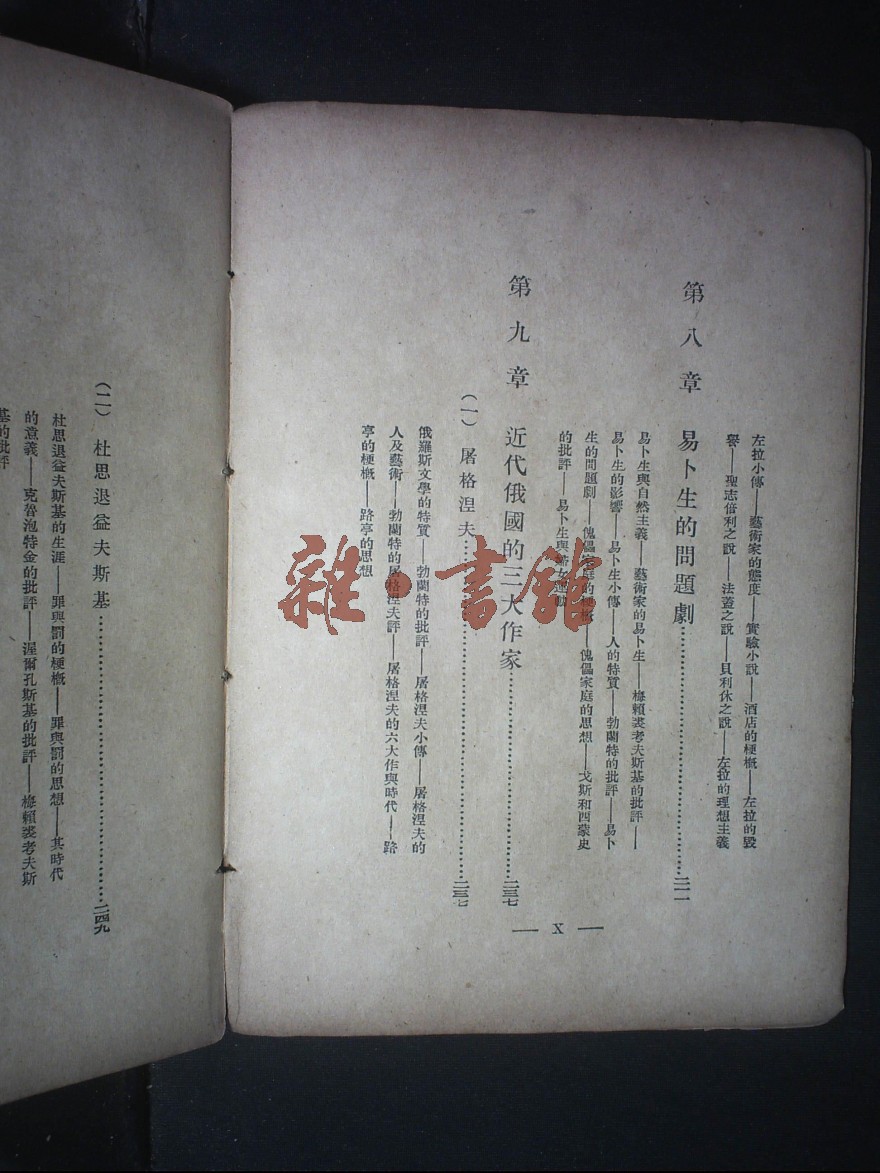 左拉小傳——藝術家的態度——實驗小說——酒店的梗概——左拉的毀
譽——聖志倍利之說——法蓋之說——貝利休之說——左拉的理想主義
第八章 易卜生的問題劇……二一一
易卜生與自然主義——藝術家的易卜生——梅賴裘考夫斯基的批評——
易卜生的影響——易卜生小傳——人的特質——勃蘭特的批評——易卜
生的問題劇——傀儡家庭的梗概——傀儡家庭的思想——戈斯和西蒙史
的批評——易卜生與婦女運動
第九章 近代俄國的三大作家……二三七
(一) 屠格涅夫……二三七
俄羅斯文學的特質——勃蘭特的批評——屠格涅夫小傳——屠格涅夫的
人及藝術——勃蘭特的屠格涅夫評——屠格涅夫的六大作與時代——路
亭的梗概——路亭的思想
— X —
(二) 杜思退益夫斯基……二四九
杜思退益夫斯基的生涯——罪與罰的梗概——罪與罰的思想——其時代
的意義——克魯泡特金的批評——渥爾孔斯基的批評——梅賴裘考夫斯
基的批評
雜·書館